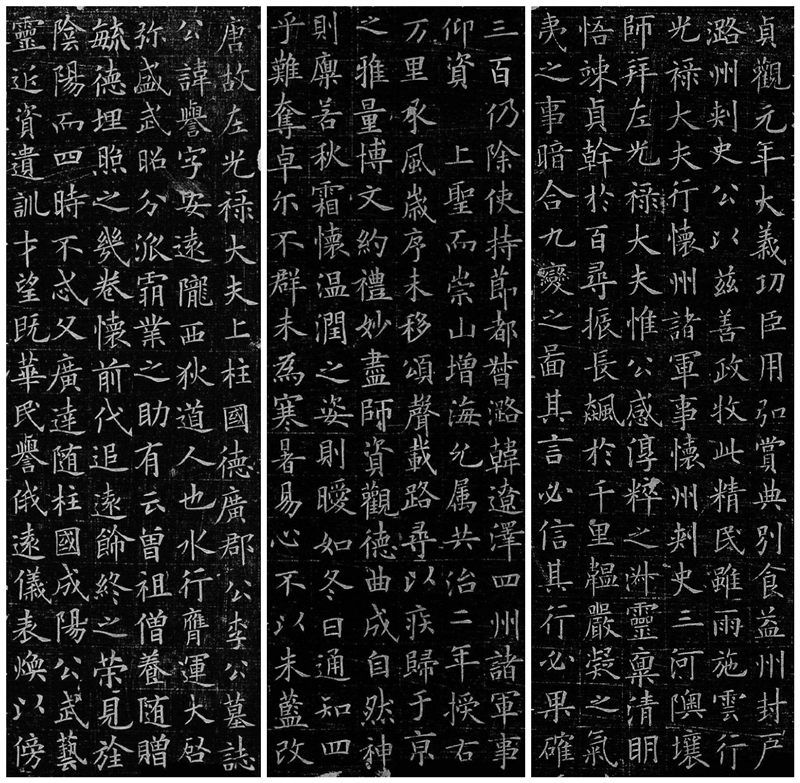 貞觀元年大義功臣用弘賞典別食益州封戶
潞州刾史公以茲善政牧此精民雖雨施雲行
光禄大夫行懷州諸軍事懷州刾史三河隩壤
師拜左光禄大夫惟公感淳粹之靈稟清明
悟竦貞幹於百尋振長飆於千里韞嚴凝之氣
夷之事暗合九變之啚其言必信其行必果確
三百仍除使持節都督潞韓遼澤四州諸軍事
仰資 上聖而崇山增海允属共治二年授右
万里承風歲序未移頌聲載路尋以疾歸于京
之雅量博文約禮妙盡師資觀德曲成自然神
則廩若秋霜懷温潤之姿則曖如冬日通知四
乎難奪卓尔不群未為寒暑易心不以朱藍改
唐故左光禄大夫上柱國德廣郡公李公墓誌
公諱譽字安遠隴西狄道人也水行膺運大啓
弥盛武昭分派霸業之助有云曾祖僧養随贈
毓德埋照之幾卷懷前代追遠飾終之榮見旌
陰陽而四時不忒父廣達随柱國成陽公武藝
靈近資遺訓才望既華民譽俄遠儀表煥以傍